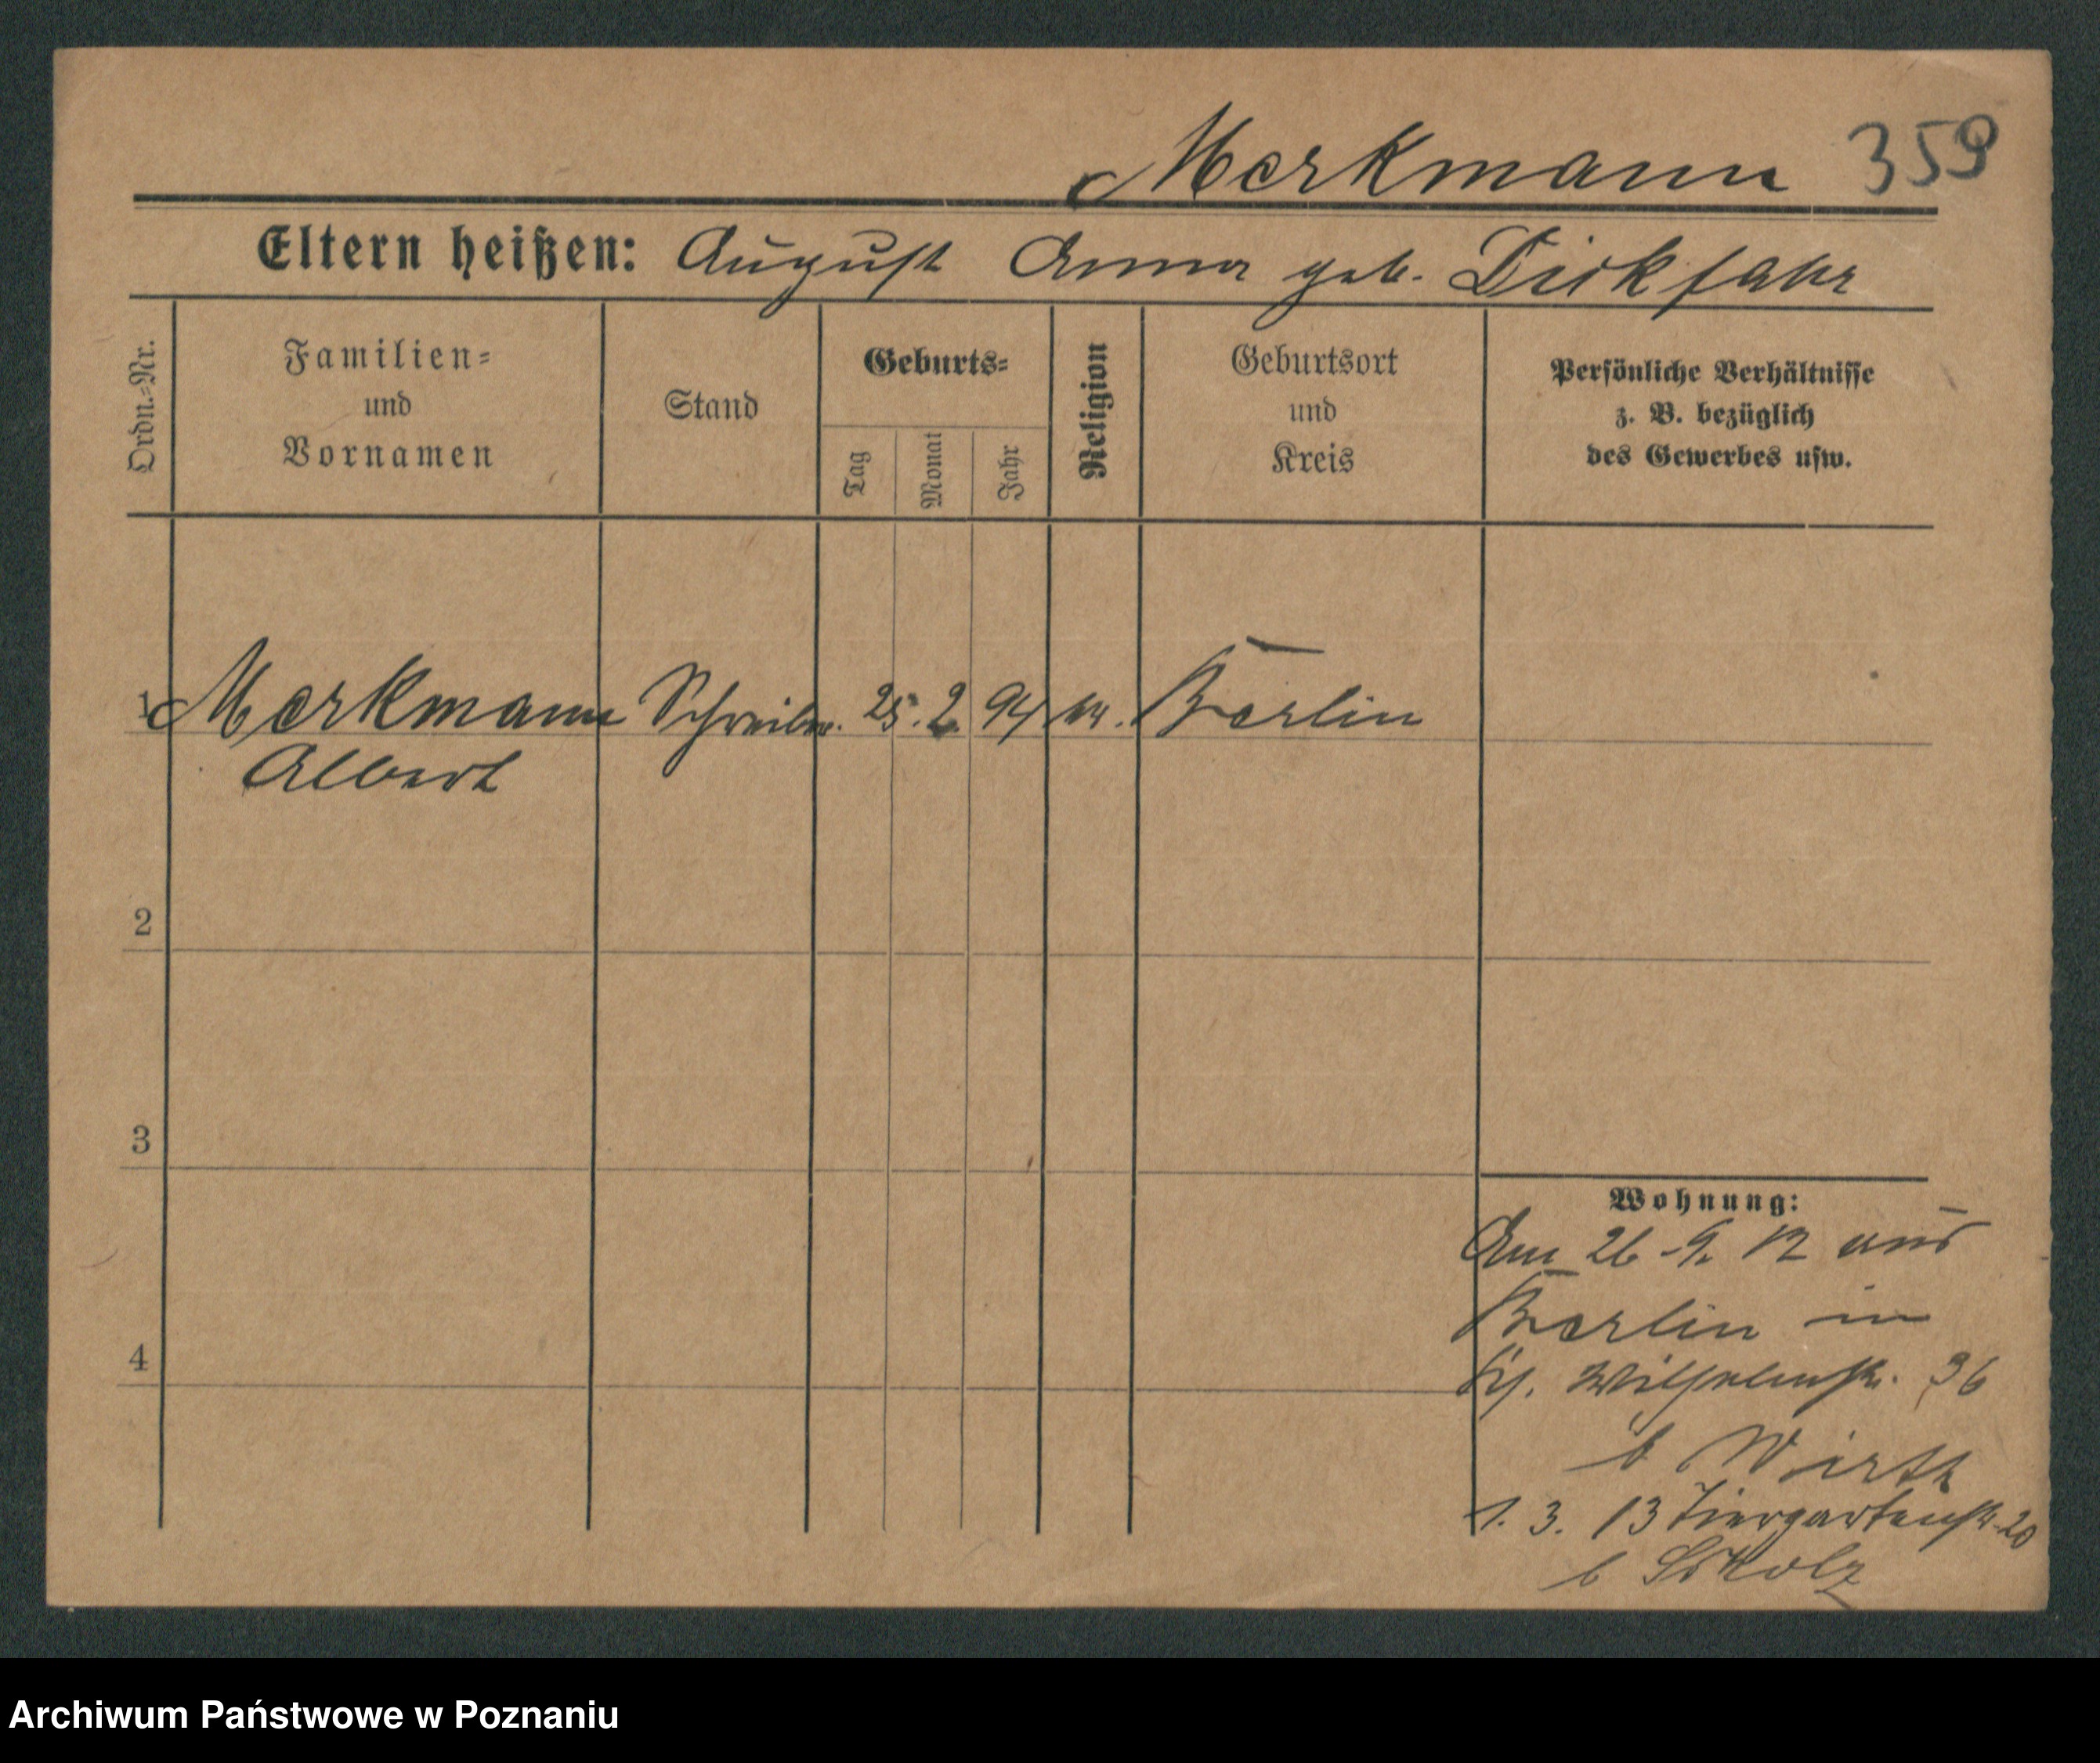 Merkmann 359
Eltern heißen: August Anna geb. Dickfahr
Ordn.-Nr.
Familien-
und
Vornamen
Stand
Geburts-
Tag
Monat
Jahr
Religion
Geburtsort
und
Kreis
Persönliche Verhältnisse
z. B. bezüglich
des Gewerbes usw.
1 Merkmann Schreiber. 25. 2. 94 Berlin
Albert
2
3
4
Wohnung:
Am 26.9.12 aus
Berlin in
Wilhelmstr. 36
b Wirth
1. 3. 13 Tiergartenstr. 20
b Scholz
Archiwum Państwowe w Poznaniu